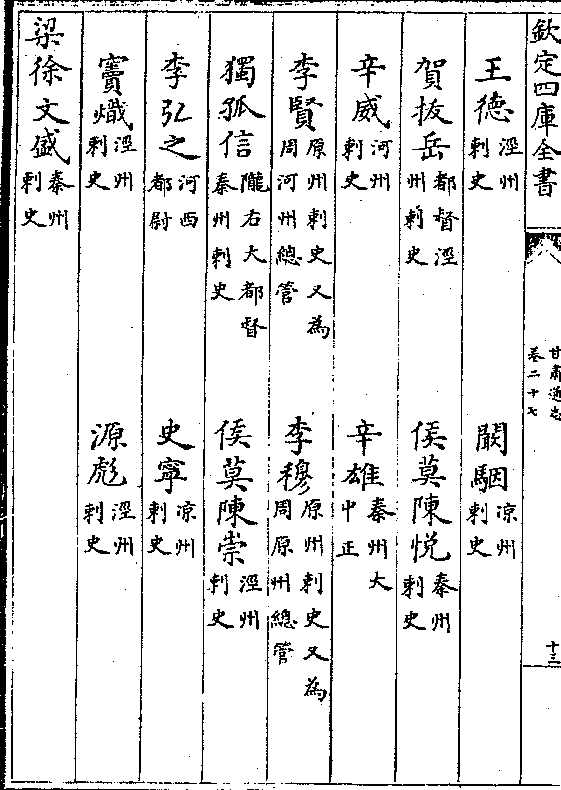 欽定四庫全書
甘肅通志
卷二十七
十三
王德涇州刺史 闞駰凉州刺史
賀拔岳都督涇州刺史 侯莫陳悦秦州刺史
辛威河州刺史 辛雄秦州大中正
李賢原州刺史又為周河州總管 李穆原州刺史又為周原州總管
獨孤信隴右大都督秦州刺史 侯莫陳崇涇州刺史
李弘之河西都尉 史寧凉州刺史
竇熾涇州刺史 源彪涇州刺史
梁徐文盛秦州刺史